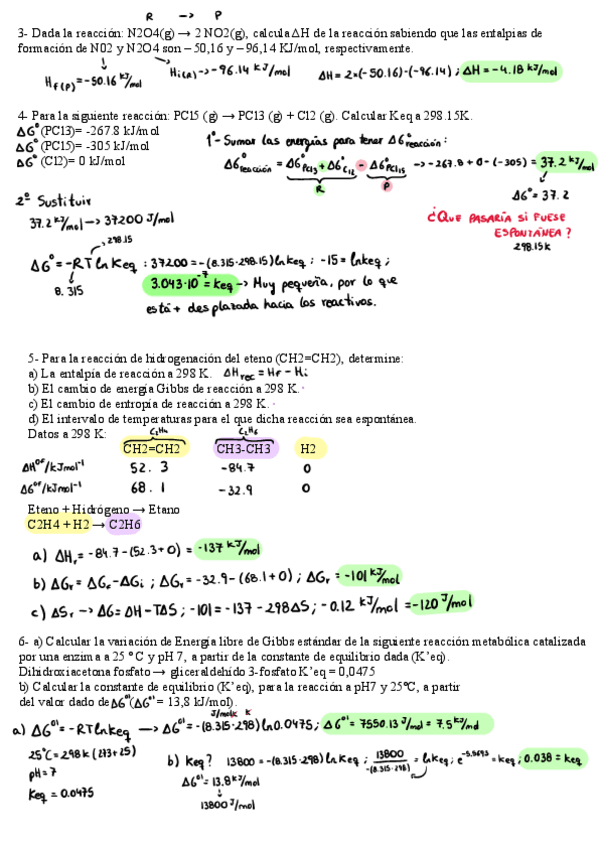 R -> P
3- Dada la reacción: N2O4(g) → 2 NO2(g), calcula ΔH de la reacción sabiendo que las entalpias de
formación de N02 y N2O4 son – 50,16 y – 96,14 KJ/mol, respectivamente.
Hf(p) = -50.16 kJ/mol Hi(R) -> -96.14 kJ/mol ΔH = 2×(-50.16)-(-96.14) ; ΔH = -4.18 kJ/mol
4- Para la siguiente reacción: PC15 (g) → PC13 (g) + C12 (g). Calcular Keq a 298.15K.
ΔG°(PC13)= -267.8 kJ/mol
ΔG°(PC15)= -305 kJ/mol
ΔG°(C12)= 0 kJ/mol
1º- Sumar las energías para tener ΔG°reacción:
ΔG°reacción = ΔG°PCl3 + ΔG°Cl2 - ΔG°PCl5 -> -267.8 + 0 - (-305) = 37.2 kJ/mol
R P
ΔG° = 37.2
2º Sustituir
37.2 kJ/mol -> 37200 J/mol
¿Que PASARÍA SI FUESE
ESPONTÁNEA?
298.15K
298.15
ΔG° = -RT ln Keq : 37200 = -(8.315·298.15) ln Keq ; -15 = ln Keq ;
8.315
3.043·10⁻⁷ = Keq -> Muy pequeña, por lo que
está + desplazada hacia los reactivos.
5- Para la reacción de hidrogenación del eteno (CH2=CH2), determine:
a) La entalpía de reacción a 298 K. ΔHrec = Hf - Hi
b) El cambio de energía Gibbs de reacción a 298 K.
c) El cambio de entropía de reacción a 298 K.
d) El intervalo de temperaturas para el que dicha reacción sea espontánea.
Datos a 298 K: C2H4 C2H6
CH2=CH2 CH3-CH3 H2
ΔH°f/kJmol⁻¹ 52.3 -84.7 0
ΔG°f/kJmol⁻¹ 68.1 -32.9 0
Eteno + Hidrógeno → Etano
C2H4 + H2 → C2H6
a) ΔHr = -84.7 - (52.3+0) = -137 kJ/mol
b) ΔGr = ΔGf - ΔGi ; ΔGr = -32.9 - (68.1+0) ; ΔGr = -101 kJ/mol
c) ΔSr -> ΔG = ΔH - TΔS ; -101 = -137 - 298ΔS ; -0.12 kJ/mol = -120 J/mol
6- a) Calcular la variación de Energía libre de Gibbs estándar de la siguiente reacción metabólica catalizada
por una enzima a 25 º C y pH 7, a partir de la constante de equilibrio dada (K’eq).
Dihidroxiacetona fosfato → gliceraldehído 3-fosfato K’eq = 0,0475
b) Calcular la constante de equilibrio (K’eq), para la reacción a pH7 y 25ºC, a partir
del valor dado de ΔG°' (ΔG°' = 13,8 kJ/mol).
J/molK K
a) ΔG°' = -RT ln Keq -> ΔG°' = -(8.315·298) ln 0.0475 ; ΔG°' = 7550.13 J/mol = 7.5 kJ/mol
25°C = 298k (273+25)
pH = 7
Keq = 0.0475
b) Keq? 13800 = -(8.315·298) ln Keq ; 13800/-(8.315·298) = ln Keq ; e^-5.5693 = Keq ; 0.038 = Keq
ΔG°' = 13.8 kJ/mol
13800 J/mol